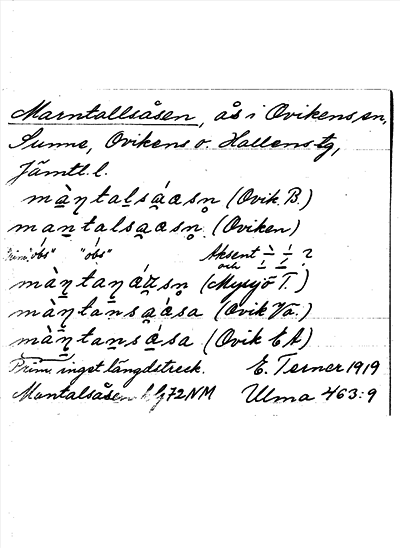 Marntallsåsen, ås i Ovikens sn,
Sunne, Ovikens o. Hallens tg,
Jämtl. l.
mà̱ŋtalsá̱æsn̥ (Ovik. B.)
maŋtalsa̱æsn̥ (Oviken)
"óbs" "óbs" Aksent ∸ ∸ ?
och
mà̱ŋ̱taŋ̱ǽsn (Myssjö T.)
mà̱ŋ̱tansá̱æsa (Ovik Va.)
mà̱ŋ̱tansá̱sa (Ovik E A)
Prim. inget längdstreck. E. Terner 1919
Mantalsåsen 72 NM Ulma 463:9